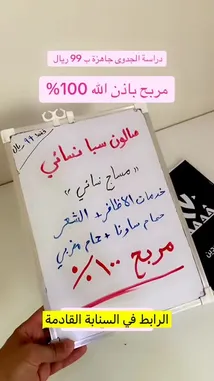 دراسة الجدوى جاهزة ب 99 ريال
مربح باذن الله 100%
فقط 99 ريال
صالون سبا نسائي
"مساج نسائي"
خدمات الاظافر + الشعر
حمام ساونا + حمام مغربي
مربح 100%
الرابط في السنابة القادمة